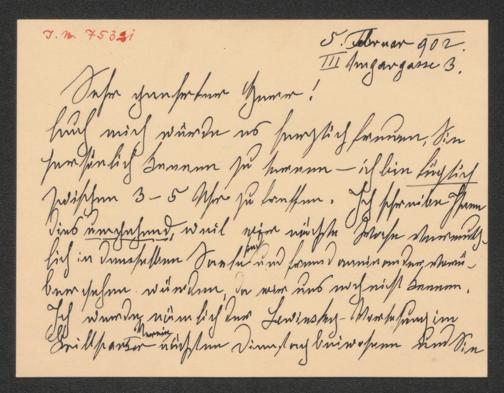 I.N. 75321
5. Februar 902.
III Ungargasse 3.
Sehr geehrter Herr!
Auch mich würde es herzlich freuen, Sie
persönlich kennen zu lernen – ich bin täglich
zwischen 3–5 Uhr zu treffen. Ich schreibe Ihnen
dies umgehend, weil wir nächste Woche vermuth-
lich in demselben Saale sein und fremd aneinander vorü-
bergehen würden, da wir uns noch nicht kennen.
Ich werde nämlich der Lewinsky-Vorlesung im
Grillparzer Verein nächsten Dienstag beiwohnen und Sie